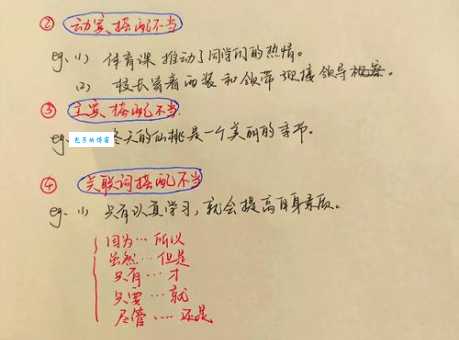 ② 动宾搭配不当
eg. (1) 体育课推动了同学们的热情。
(2) 校长穿着西装和领带迎接领导视察。
③ 主宾搭配不当
eg. 冬天的仙桃是一个美丽的季节。
④ 关联词搭配不当
eg. (1) 只有认真学习，就会提高自身素质。
因为…所以
虽然…但是
只有…才
只要…就
尽管…还是